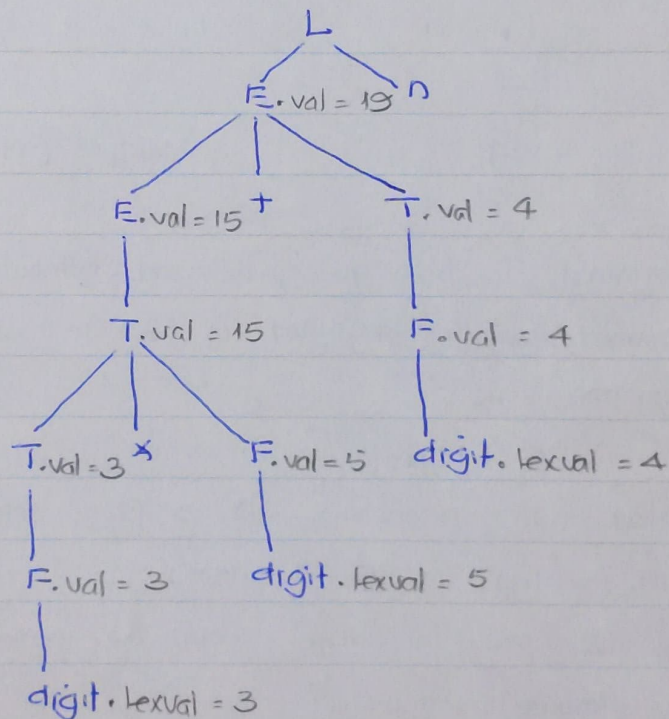 L
E.val = 19 n
E.val = 15 + T.val = 4
T.val = 15 F.val = 4
T.val = 3 * F.val = 5 digit.lexval = 4
F.val = 3 digit.lexval = 5
digit.lexval = 3